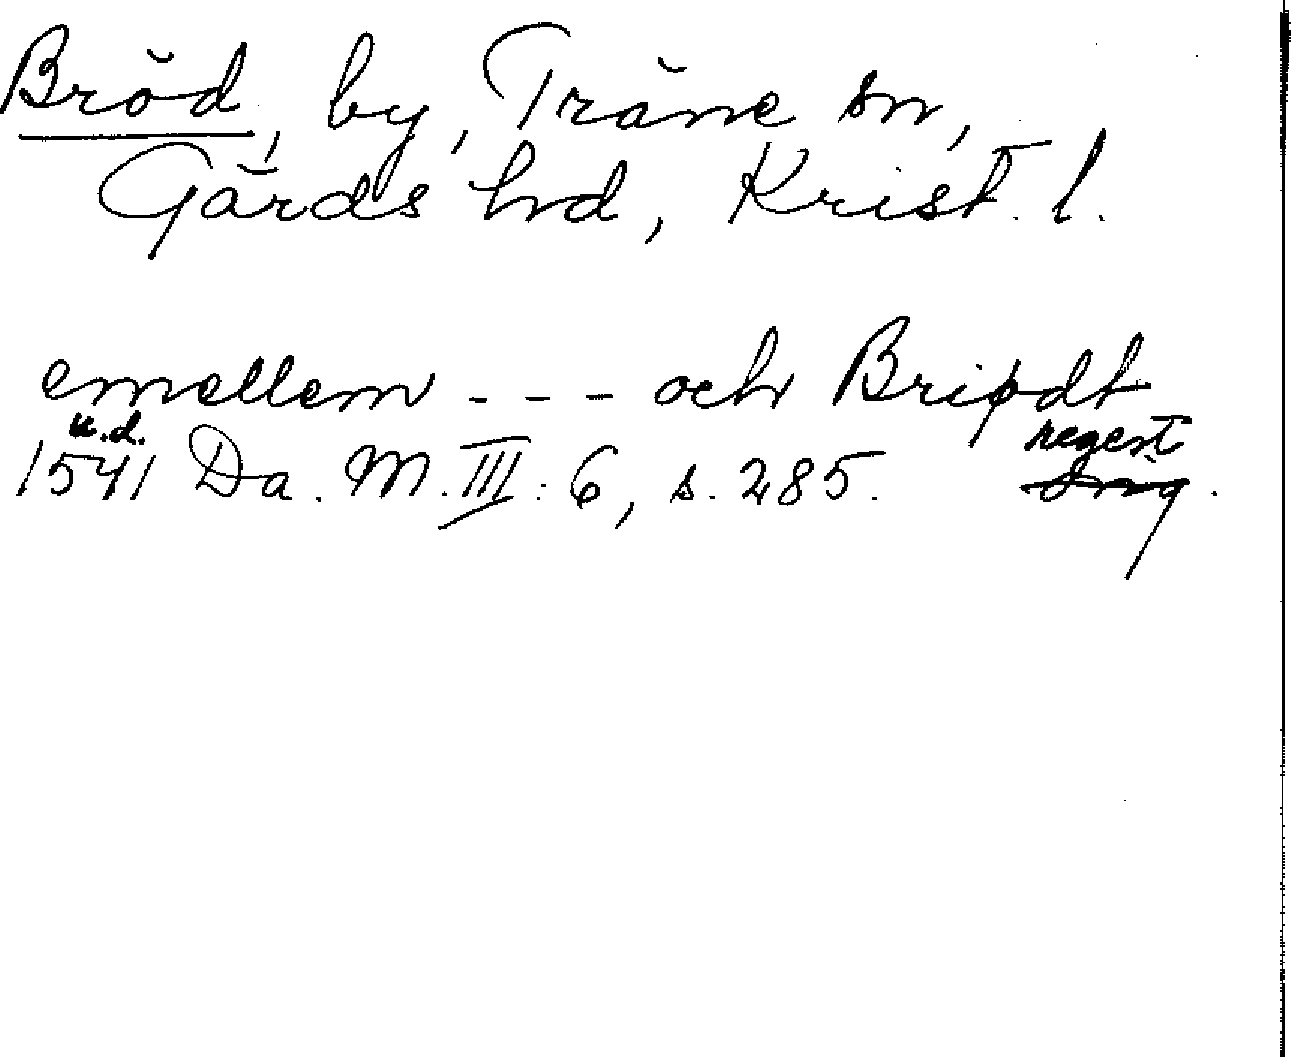 Bröd, by, Träne sn,
Gärds hd, Krist. l.
emellem - - - och Briødt
u.d. regest
1541 Da. M. III: 6, s. 285.